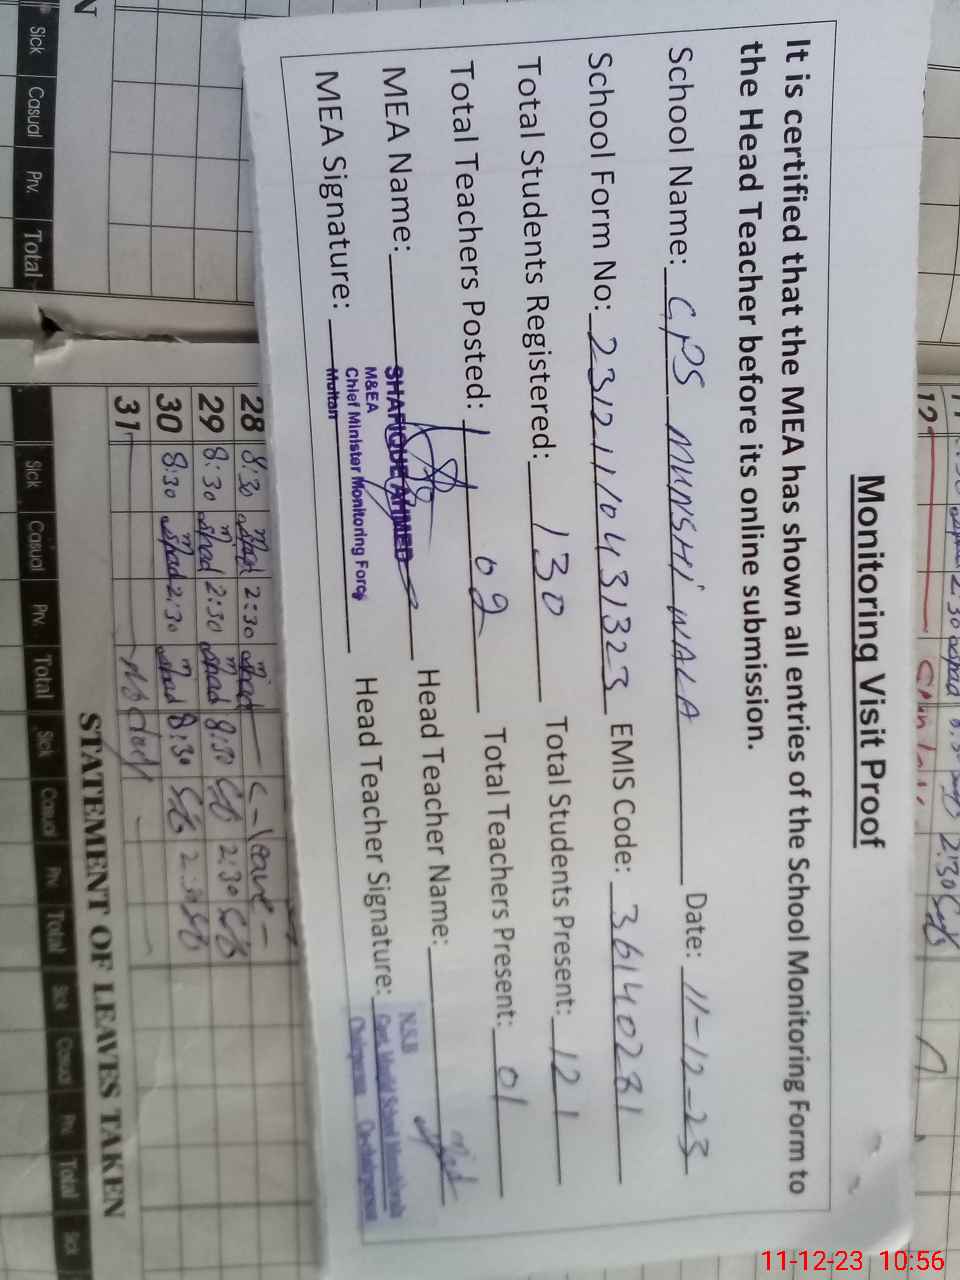 Monitoring Visit Proof
It is certified that the MEA has shown all entries of the School Monitoring Form to
the Head Teacher before its online submission.
School Name: GPS MUNSHI WALA Date: 11-12-23
School Form No: 2312110431323 EMIS Code: 36140231
Total Students Registered: 130 Total Students Present: 121
Total Teachers Posted: 02 Total Teachers Present: 01
MEA Name: SHAFIQUE AHMED Head Teacher Name:
M&EA
Chief Minister Monitoring Force
Multan
MEA Signature: Head Teacher Signature:
N.S.B
28 8:30 2:30 Leave
29 8:30 2:30 8:30 2:30
30 8:30 2:30 8:30 2:30
31
STATEMENT OF LEAVES TAKEN
Sick Casual Prv. Total Sick Casual Prv. Total Sick Casual Prv. Total Sick
N
Sick Casual Prv. Total
12
2:30
11-12-23 10:56